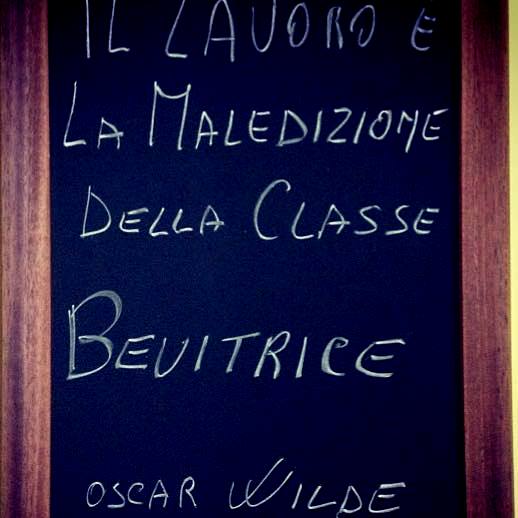 IL LAVORO E
LA MALEDIZIONE
DELLA CLASSE
BEVITRICE
OSCAR WILDE